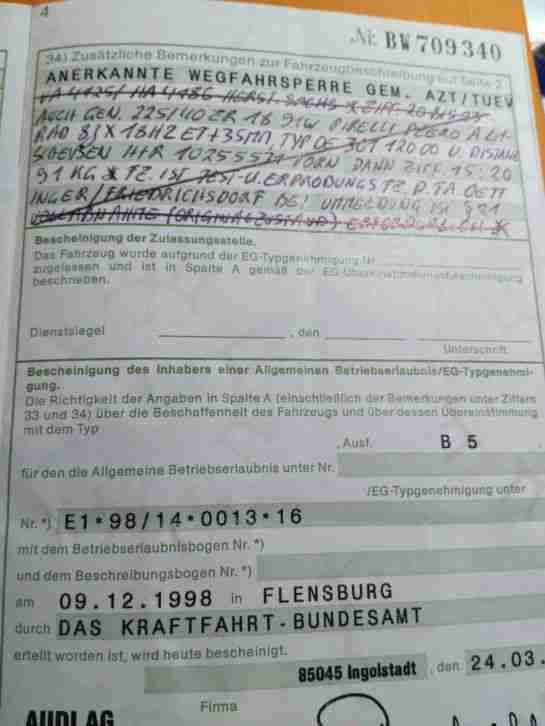 4
Nr. BW 709340
34) Zusätzliche Bemerkungen zur Fahrzeugbeschreibung auf Seite 2
ANERKANNTE WEGFAHRSPERRE GEM. AZT/TUEV
AUCH GEN. 225/40 ZR 18 91W PIRELLI PZERO A. LM-
RAD 8J X 18H2 ET+35MM, TYP 12000 U. DISTANZ
SCHEIBEN VORN DANN ZIFF. 15: 20
91 KG * FZ. IST TEST- U. ERPROBUNGSFZ. D. FA OETT
INGER/FRIEDRICHSDORF BEI UMMELDUNG IST §21
VOLLABNAHME (ORIGINALZUSTAND) ERFORDERLICH *
Bescheinigung der Zulassungsstelle.
Das Fahrzeug wurde aufgrund der EG-Typgenehmigung Nr.
zugelassen und ist in Spalte A gemäß der EG-Übereinstimmungsbescheinigung
beschrieben.
Dienstsiegel , den
Unterschrift
Bescheinigung des Inhabers einer Allgemeinen Betriebserlaubnis/EG-Typgenehmi-
gung.
Die Richtigkeit der Angaben in Spalte A (einschließlich der Bemerkungen unter Ziffern
33 und 34) über die Beschaffenheit des Fahrzeugs und über dessen Übereinstimmung
mit dem Typ
, Ausf. B 5 ,
für den die Allgemeine Betriebserlaubnis unter Nr.
/EG-Typgenehmigung unter
Nr. *) E1*98/14*0013*16
mit dem Betriebserlaubnisbogen Nr. *)
und dem Beschreibungsbogen Nr. *)
am 09.12.1998 in FLENSBURG
durch DAS KRAFTFAHRT-BUNDESAMT
erteilt worden ist, wird heute bescheinigt.
85045 Ingolstadt , den 24.03.
Firma
AUDI AG